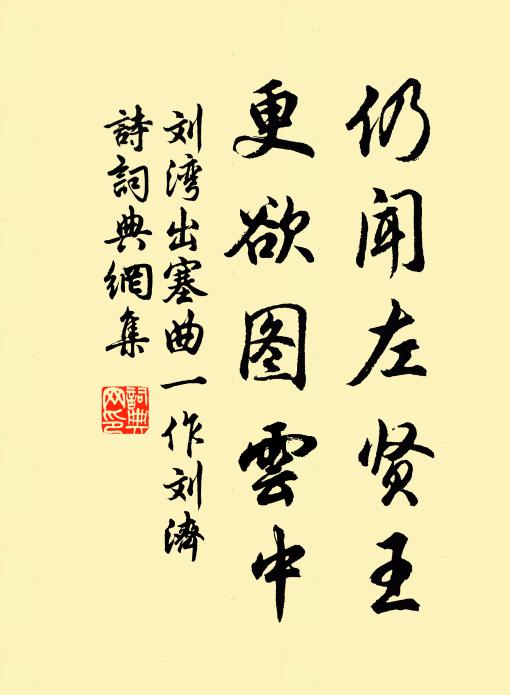 仍闻左贤王
更欲图雲中
刘湾出塞曲一作刘濟
詩詞典網集
詞典網印